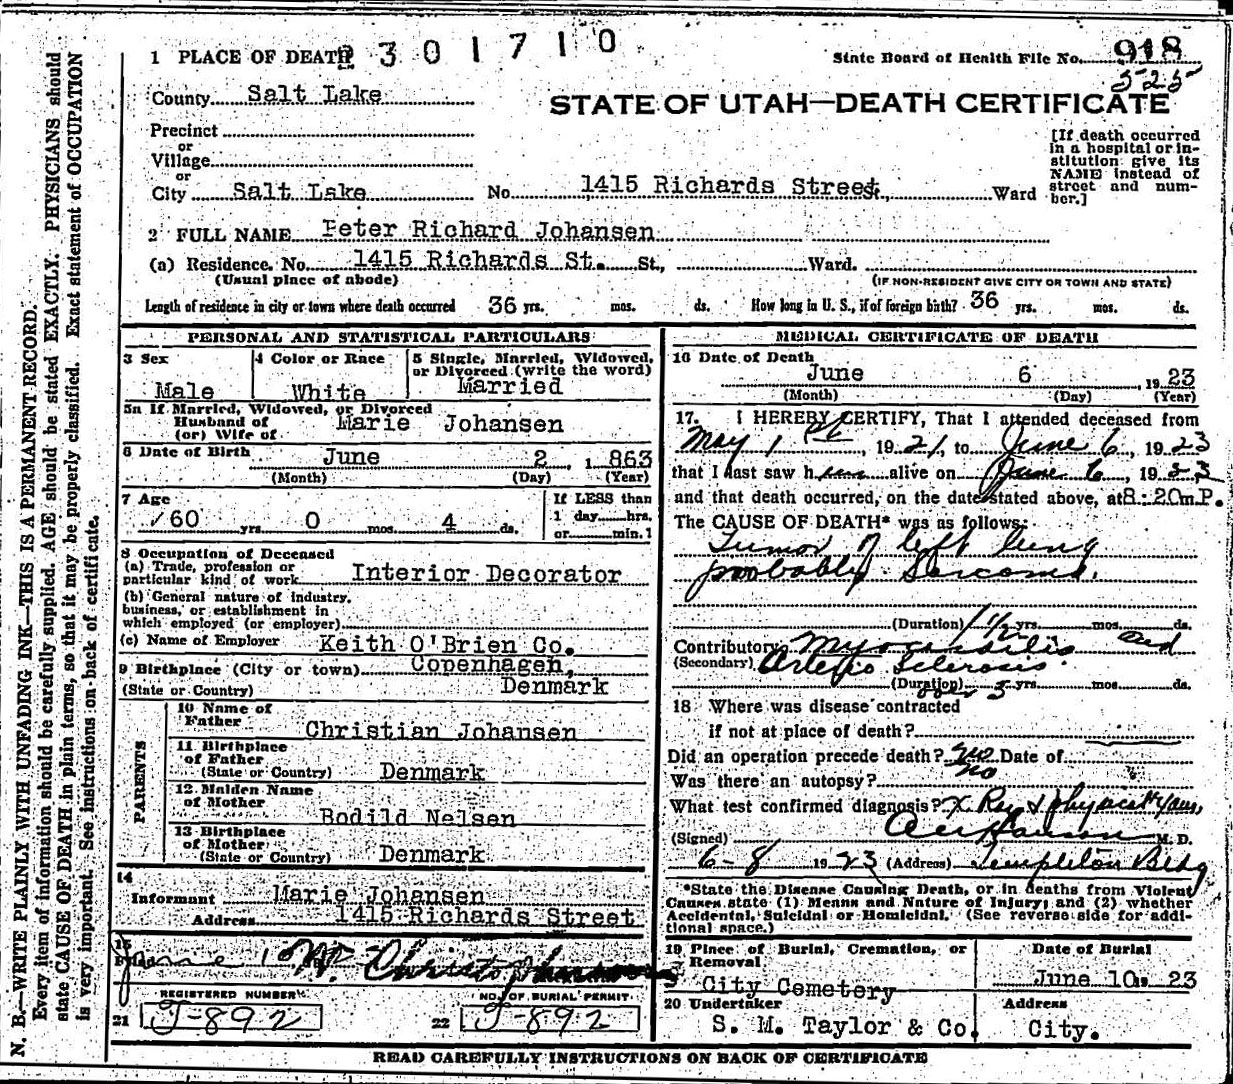 1 PLACE OF DEATH 2301710
State Board of Health File No. 918
525
County Salt Lake
STATE OF UTAH—DEATH CERTIFICATE
Precinct
or
Village
or
City Salt Lake No. 1415 Richards Street St., Ward
[If death occurred
in a hospital or in-
stitution give its
NAME instead of
street and num-
ber.]
2 FULL NAME Peter Richard Johansen
(a) Residence. No. 1415 Richards St. St., Ward.
(Usual place of abode) (IF NON-RESIDENT GIVE CITY OR TOWN AND STATE)
Length of residence in city or town where death occurred 36 yrs. mos. ds. How long in U. S., if of foreign birth? 36 yrs. mos. ds.
PERSONAL AND STATISTICAL PARTICULARS
3 Sex
Male
4 Color or Race
White
5 Single, Married, Widowed,
or Divorced (write the word)
Married
5a If Married, Widowed, or Divorced
Husband of
(or) Wife of Marie Johansen
6 Date of Birth June 2, 1863
(Month) (Day) (Year)
7 Age
60 yrs. 0 mos. 4 ds.
If LESS than
1 day hrs.
or min. 1
8 Occupation of Deceased
(a) Trade, profession or
particular kind of work Interior Decorator
(b) General nature of industry,
business, or establishment in
which employed (or employer)
(c) Name of Employer Keith O'Brien Co.
9 Birthplace (City or town) Copenhagen,
(State or Country) Denmark
PARENTS
10 Name of
Father Christian Johansen
11 Birthplace
of Father
(State or Country) Denmark
12 Maiden Name
of Mother Bodild Nelsen
13 Birthplace
of Mother
(State or Country) Denmark
14
Informant Marie Johansen
Address 1415 Richards Street
15
Filed June
REGISTERED NUMBER
21 J-892
NO. OF BURIAL PERMIT
22 J-892
MEDICAL CERTIFICATE OF DEATH
16 Date of Death
June 6, 1923
(Month) (Day) (Year)
17. I HEREBY CERTIFY, That I attended deceased from
May 1st, 1921, to June 6, 1923
that I last saw him alive on June 6, 1923
and that death occurred, on the date stated above, at 8:20 m.P.
The CAUSE OF DEATH* was as follows:
Tumor of left lung
probably Sarcoma.
(Duration) 1 1/2 yrs. mos. ds.
Contributory Myocarditis and
(Secondary) Arterio Sclerosis.
(Duration) over 5 yrs. mos. ds.
18 Where was disease contracted
if not at place of death?
Did an operation precede death? no Date of
Was there an autopsy? no
What test confirmed diagnosis? X Ray & physical Exam,
(Signed) M. D.
6-8 1923 (Address) Templeton Bldg
*State the Disease Causing Death, or in deaths from Violent
Causes state (1) Means and Nature of Injury; and (2) whether
Accidental, Suicidal or Homicidal. (See reverse side for addi-
tional space.)
19 Place of Burial, Cremation, or
Removal
City Cemetery
Date of Burial
June 10, 1923
20 Undertaker
S. M. Taylor & Co.
Address
City.
READ CAREFULLY INSTRUCTIONS ON BACK OF CERTIFICATE
N. B.—WRITE PLAINLY WITH UNFADING INK—THIS IS A PERMANENT RECORD.
Every item of information should be carefully supplied. AGE should be stated EXACTLY. PHYSICIANS should
state CAUSE OF DEATH in plain terms, so that it may be properly classified. Exact statement of OCCUPATION
is very important. See instructions on back of certificate.